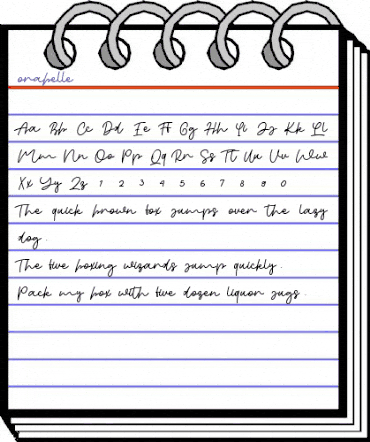 orabelle
Aa Bb Cc Dd Ee Ff Gg Hh Ii Jj Kk Ll
Mm Nn Oo Pp Qq Rr Ss Tt Uu Vv Ww
Xx Yy Zz 1 2 3 4 5 6 7 8 9 0
The quick brown fox jumps over the lazy
dog.
The five boxing wizards jump quickly.
Pack my box with five dozen liquor jugs.